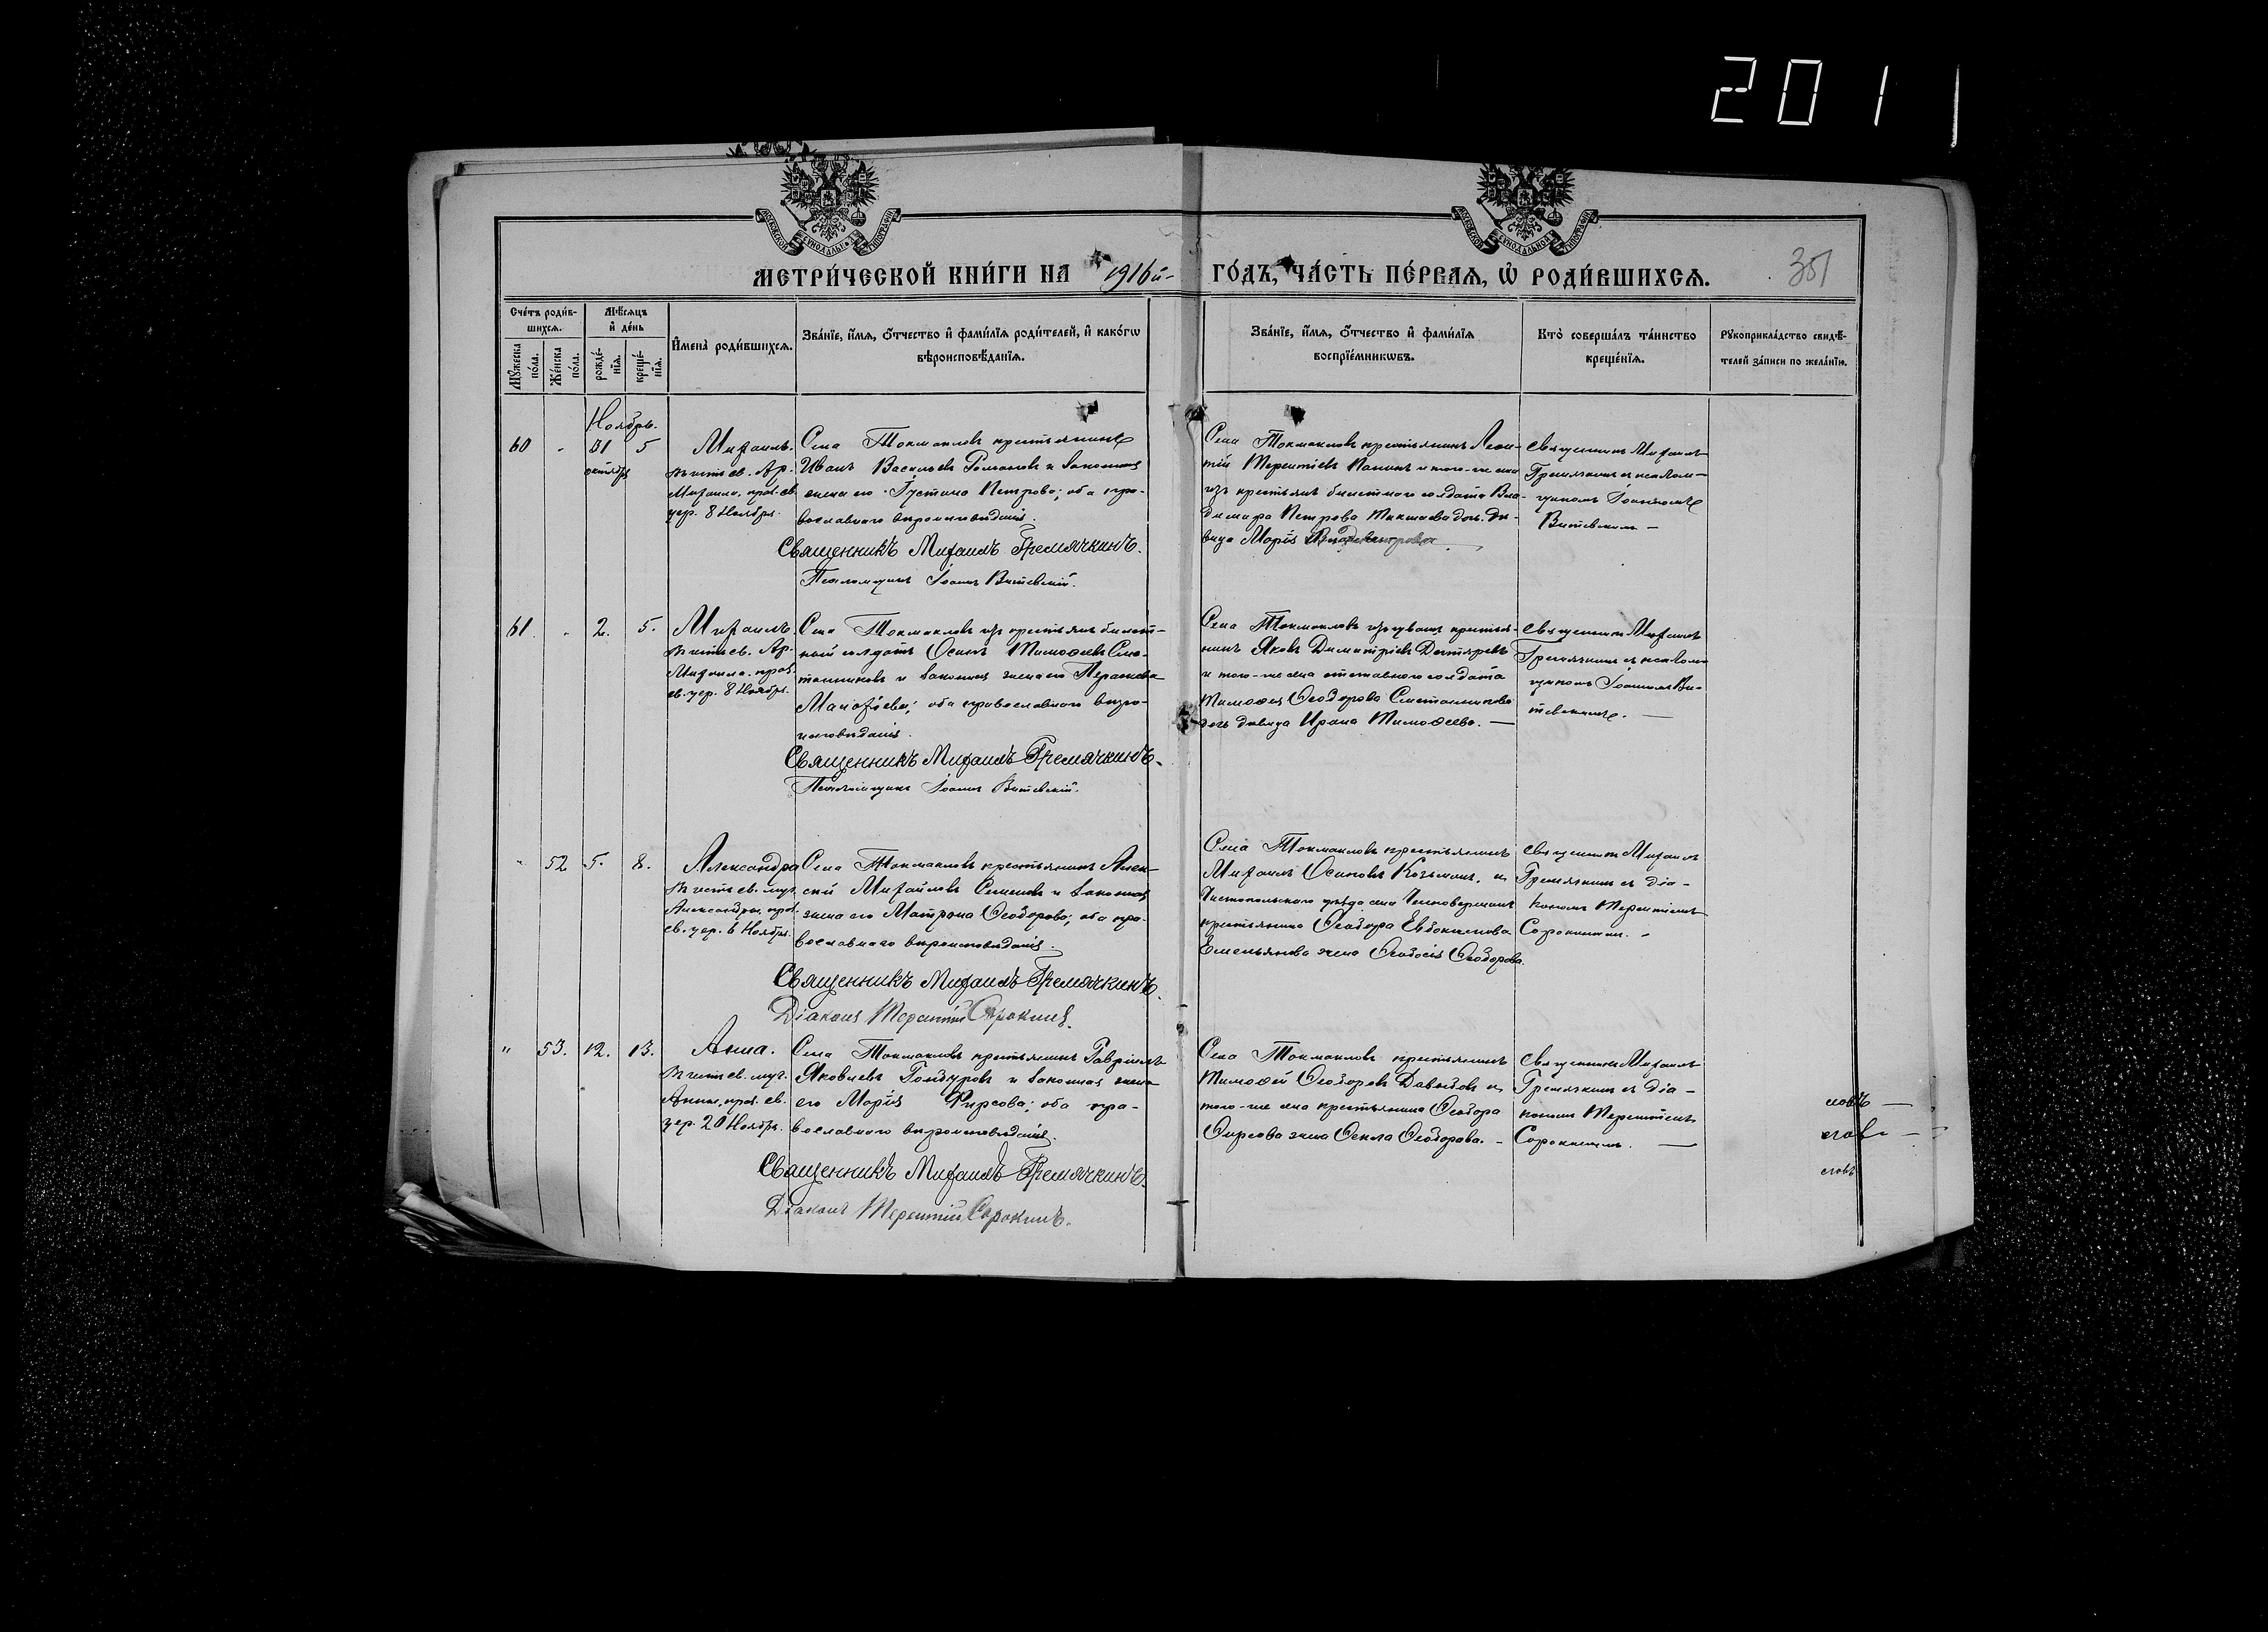 2011
МОСКОВСКОЙ СѴНОДАЛЬНОЙ ТИПОГРАФІИ
МОСКОВСКОЙ СѴНОДАЛЬНОЙ ТИПОГРАФІИ
МЕТРИ́ЧЕСКОЙ КНИ́ГИ НА 1916й ГО́ДЪ, ЧА́СТЬ ПЕ́РВАЯ, Ѡ҆ РОДИ́ВШИХСЯ.
351
Сче́тъ роди́в-
шихся.
Му́жеска
по́ла.
Же́нска
по́ла.
Мѣ́сяцъ
и҆ де́нь
рожде́-
нїѧ.
креще́-
нїѧ.
И҆мена̀ роди́вшихсѧ.
Зва́нїе, и҆́мѧ, ѻ҆́тчество и҆ фами́лїѧ роди́телей, и҆ како́гѡ
вѣроисповѣ́данїѧ.
Зва́нїе, и҆́мѧ, ѻ҆́тчество и҆ фами́лїѧ
воспрїе́мникѡвъ.
Кто̀ соверша́лъ та́инство
креще́нїѧ.
Рукоприкла́дство свидѣ́-
телей за́писи по жела́нїю.
Ноябрь.
60 " 31 5
октября
Михаилъ.
въ честь св. Ар.
Михаила, праз. св.
цер. 8 Ноября.
Села Токмаклов крестьянинъ
Иванъ Васильевъ Романовъ и законная
жена его Іустина Петрова; оба пра-
вославнаго вѣроисповѣданія.
Священникъ Михаилъ Гремячкинъ.
Псаломщикъ Іоаннъ Витевскій.
Села Токмаклов крестьянинъ Леон-
тій Терентіевъ и того-же села
изъ крестьянъ билетнаго солдата Вла-
димира Петрова дочь дѣ-
вица Марія
Священникъ Михаилъ
Гремячкинъ съ псалом-
щикомъ Іоанномъ
Витевскимъ —
61. " 2. 5.
Михаилъ.
въ честь св. Ар.
Михаила, праз.
св. цер. 8 Ноября.
Села Токмаклов изъ крестьянъ билет-
ный солдатъ Осипъ Тимоѳеевъ Сме-
танниковъ и законная жена его
оба православнаго вѣро-
исповѣданія.
Священникъ Михаилъ Гремячкинъ.
Псаломщикъ Іоаннъ Витевскій.
Села Токмаклов изъ чувашъ крестья-
нинъ Яковъ Димитріевъ Дегтяревъ
и того-же села отставного солдата
Тимоѳея Ѳеодорова Сметанникова
дочь дѣвица Ирина Тимоѳеева. —
Священникъ Михаилъ
Гремячкинъ съ псалом-
щикомъ Іоанномъ Ви-
тевскимъ. —
" 52 5. 8.
Александра
въ честь св. муч.
Александры, праз.
св. цер. 6 Ноября.
Села Токмаклов крестьянинъ Алек-
сѣй Михайловъ Семеновъ и законная
жена его Матрона Ѳеодорова; оба пра-
вославнаго вѣроисповѣданія.
Священникъ Михаилъ Гремячкинъ.
Діаконъ Терентій Сорокинъ.
Села Токмаклов крестьянинъ
Михаилъ Осиповъ Козьминъ, и
Чистопольскаго уѣзда села
крестьянина Ѳеодора Евдокимова
Емельянова жена Ѳеодосія Ѳеодорова.
Священникъ Михаилъ
Гремячкинъ съ діа-
кономъ Терентіемъ
Сорокинымъ. —
" 53. 12. 13.
Анна.
въ честь св. муч.
Анны, праз. св.
цер. 20 Ноябр.
Села Токмаклов крестьянинъ Гавріилъ
Яковлевъ и законная жена
его Марія Фирсова; оба пра-
вославнаго вѣроисповѣданія.
Священникъ Михаилъ Гремячкинъ.
Діаконъ Терентій Сорокинъ.
Села Токмаклов крестьянинъ
Тимоѳей Ѳеодоровъ Давыдовъ и
того-же села крестьянина Ѳеодора
Ѳирсова жена Ѳекла Ѳеодорова. —
Священникъ Михаилъ
Гремячкинъ съ діа-
кономъ Терентіемъ
Сорокинымъ. —